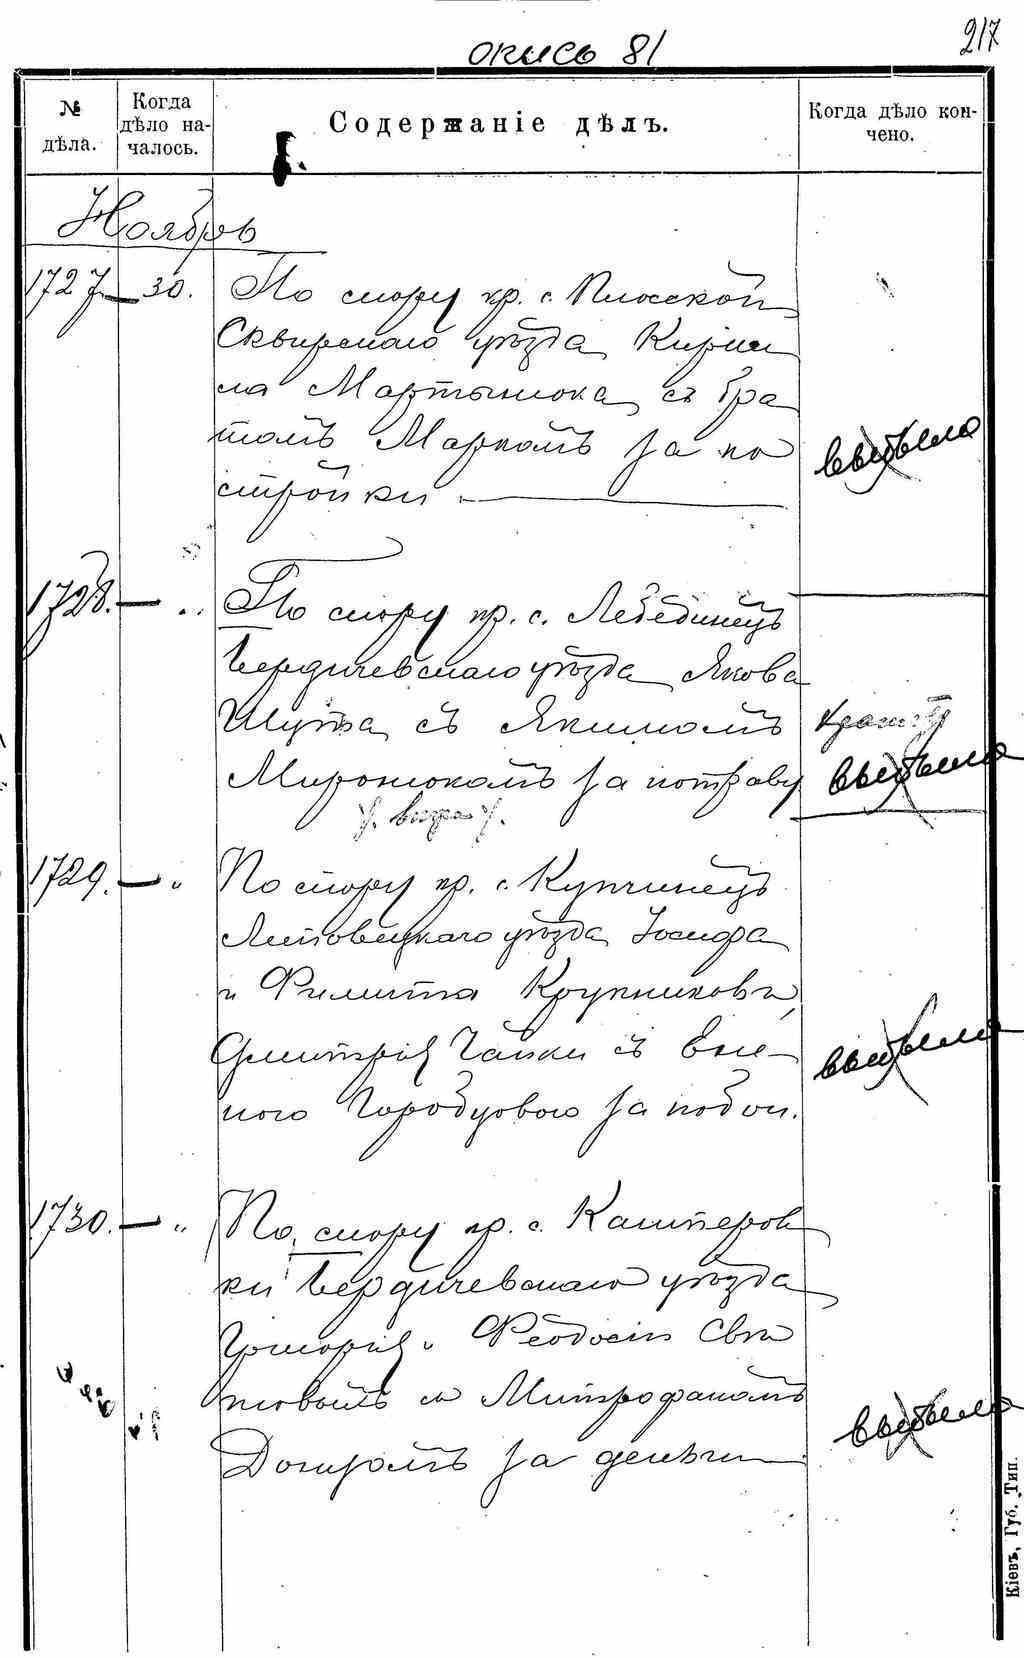 опись 81
217
№ дѣла.
Когда дѣло на-чалось.
Содержаніе дѣлъ.
Когда дѣло кон-чено.
Ноябрь
1727 — 30. По спору кр. с. Плоской
Сквирскаго уѣзда Кирил
ла Мартынюка съ бра
томъ Маркомъ за по
стройки —
выбыло
1728. — " По спору кр. с. Лебединецъ
Бердичевскаго уѣзда Якова
Шупа съ Якимомъ
Миронюкомъ за потраву
выбыло
1729. — " По спору кр. с. Купчинецъ
Липовецкаго уѣзда Іосифа
и Филиппа Крупниковъ,
Дмитрія Чайки съ
Городцовою за побои.
выбыло
1730. — " По спору кр. с. Кашперов
ки Бердичевскаго уѣзда
Григорія и Феодосіи
съ Митрофаномъ
за деньги
выбыло
Кіевъ, Губ. Тип.